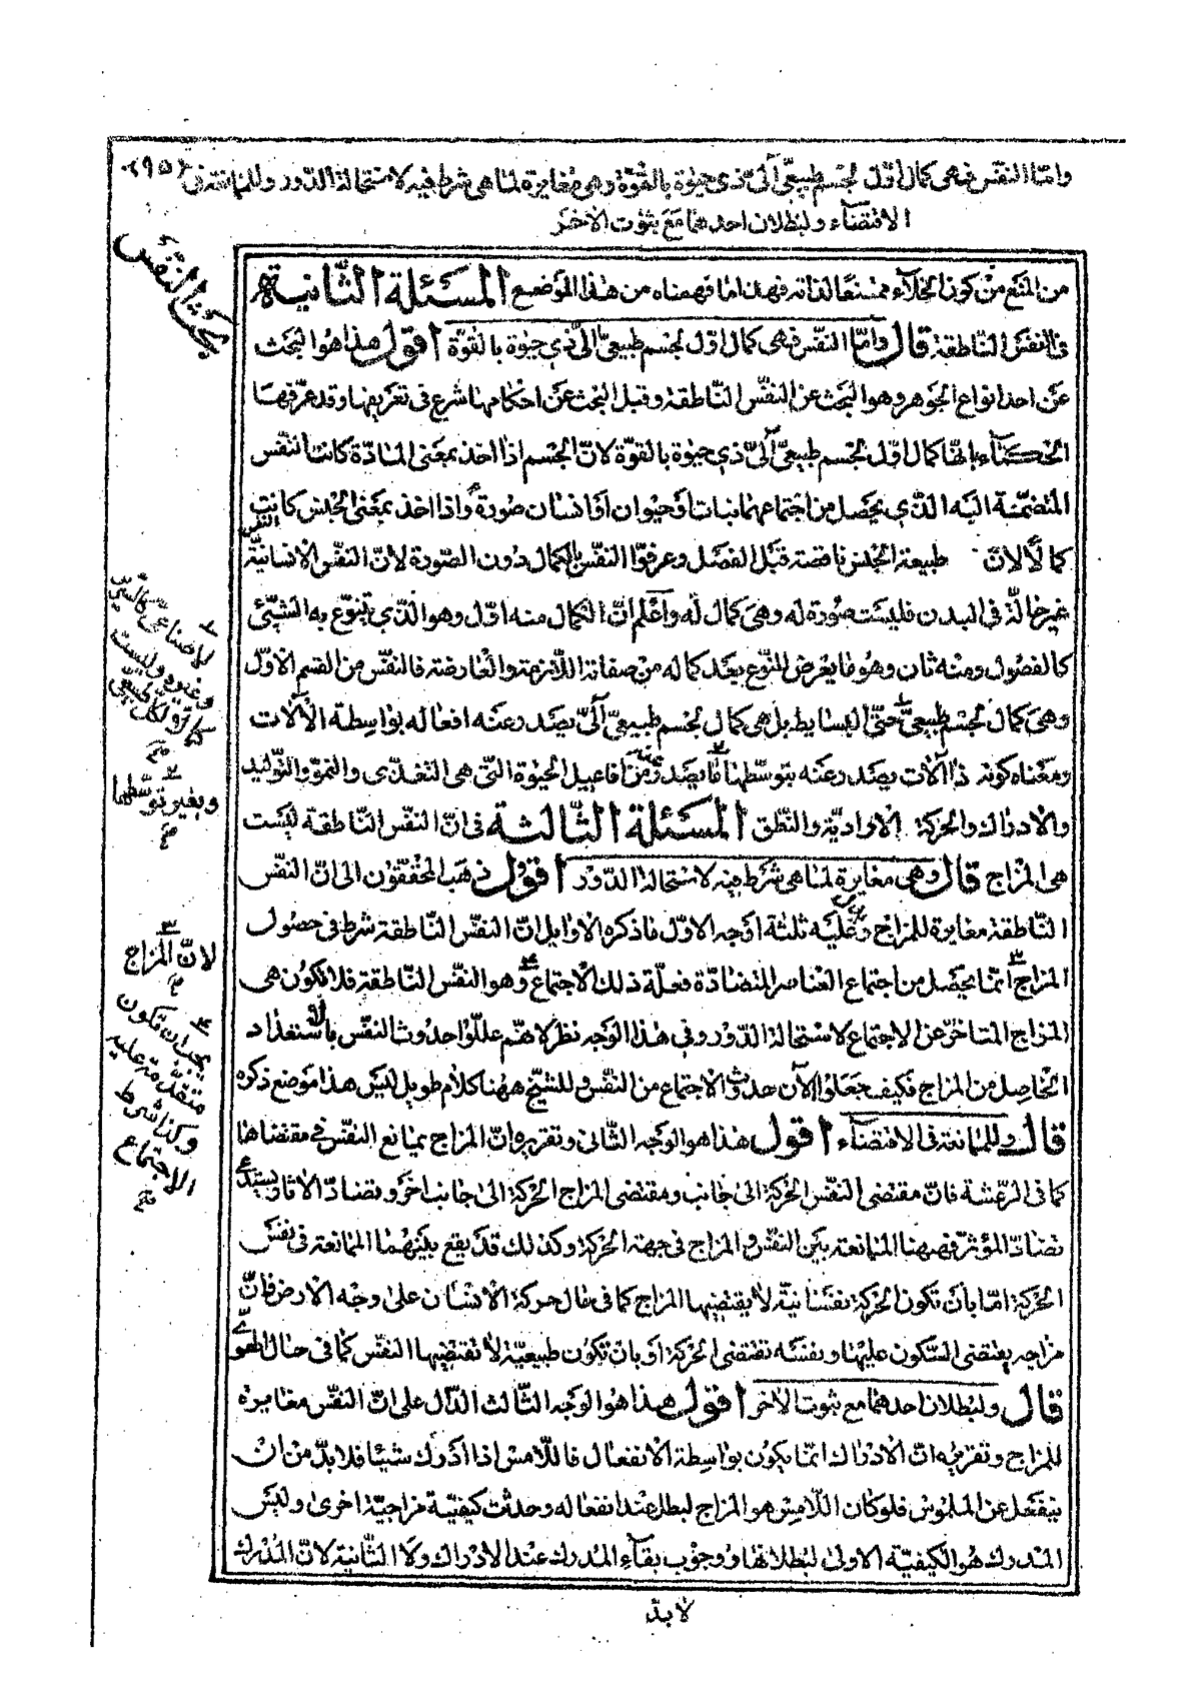 (٩٥) وامّا النفس فهى كمال اوّل لجسم طبيعىّ آلىّ ذى حيوة بالقوّة وهى مغايرة لما هى شرط فيه لاستحالة الدّور وللممانعة فى
الاقتضاء ولبطلان احدهما مع ثبوت الاخر
بحث النّفس
من المنع من كون الخلاء ممتنعًا لذاته فهذا ما فهمناه من هذا الموضع المسئلة الثّانية
فى النفس النّاطقة قال وامّا النفس فهى كمال اوّل لجسم طبيعىّ آلىّ ذى حيوة بالقوّة اقول هذا هو البحث
عن احد انواع الجوهر وهو البحث عن النفس النّاطقة وقبل البحث عن احكامها شرع فى تعريفها وقد عرّفها
الحكماء بانّها كمال اوّل لجسم طبيعىّ آلىّ ذى حيوة بالقوّة لانّ الجسم اذا اخذ بمعنى المادّة كانت النفس
المنضمّة اليه الذّى يحصل من اجتماعهما نبات او حيوان او انسان صورة واذا اخذ بمعنى الجنس كانت النفس
كمالا لانّ طبيعة الجنس ناقصة قبل الفصل وعرفوا النفس بالكمال دون الصّورة لانّ النفس الانسانيّة
غير حالّة فى البدن فليست صورة له وهى كمال له واعلم انّ الكمال منه اوّل وهو الذّى يتنوّع به الشيئ
كالفصول ومنه ثان وهو ما يعرض للنّوع بعد كماله من صفاته اللّازمة والعارضة فالنفس من القسم الاوّل
وهى كمال لجسم طبيعىّ حتّى البسايط بل هى كمال لجسم طبيعىّ آلىّ يصدر عنه افعاله بواسطة الآلات
ومعناه كونه ذا آلات يصدر عنه بتوسّطها ما يصدر من افاعيل الحيوة التّى هى التغذّى والنموّ والتّوليد
والادراك والحركة الاراديّة والنّطق المسئلة الثّالثة فى انّ النفس النّاطقة ليست
هى المزاج قال وهى مغايرة لما هى شرط فيه لاستحالة الدّور اقول ذهب المحقّقون الى انّ النفس
النّاطقة مغايرة للمزاج وعليه ثلثة اوجه الاوّل ما ذكره الاوايل انّ النفس النّاطقة شرط فى حصول
المزاج انّما يحصل من اجتماع العناصر المتضادّة فعلّة ذلك الاجتماع وهو النفس النّاطقة فلا تكون هى
المزاج المتاخّر عن الاجتماع لاستحالة الدّور وفى هذا الوجه نظر لانّهم علّلوا حدوث النفس بالاستعداد
الحاصل من المزاج فكيف جعلوا الآن حدوث الاجتماع من النفس وللشيخ ههنا كلام طويل ليس هذا موضع ذكره
قال وللممانعة فى الاقتضاء اقول هذا هو الوجه الثانى وتقريره انّ المزاج يمانع النفس فى مقتضاها
كما فى الرّعشة فانّ مقتضى النفس الحركة الى جانب ومقتضى المزاج الحركة الى جانب اخر وتضادّ الاثار يستدعى
تضادّ المؤثّر فههنا الممانعة بين النفس والمزاج فى جهة الحركة وكذلك قد يقع بينهما الممانعة فى نفس
الحركة امّا بان تكون الحركة نفسانيّة لا يقتضيها المزاج كما فى حال حركة الانسان على وجه الارض فانّ
مزاجه يقتضى السّكون عليها ونفسه تقتضى الحركة او بان تكون طبيعيّة لا تقتضيها النفس كما فى حال الهوى
قال ولبطلان احدهما مع ثبوت الاخر اقول هذا هو الوجه الثّالث الدّال على انّ النفس مغايرة
للمزاج وتقريره انّ الادراك انّما يكون بواسطة الانفعال فاللّامس اذا ادرك شيئا فلا بدّ من ان
ينفعل عن الملموس فلو كان اللّامس هو المزاج لبطل عند انفعاله وحدثت كيفيّة مزاجيّة اخرى وليس
المدرك هو الكيفيّة الاولى لبطلانها ووجوب بقاء المدرك عند الادراك ولا الثّانية لانّ المدرك
لا بدّ
١
لا صناعىّ كالسّرير
وغيره وليست
كمالا لكلّ طبيعىّ
٢
وبغير توسّطها
٣
لانّ المزاج
٤
يجب ان تكون
متقدّمة عليه
وكذا شرط
الاجتماع